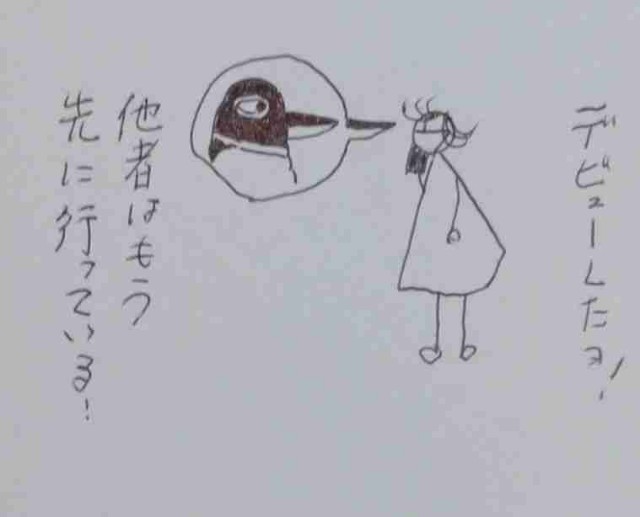 デビューしたヨ!
他者はもう
先に行っている!